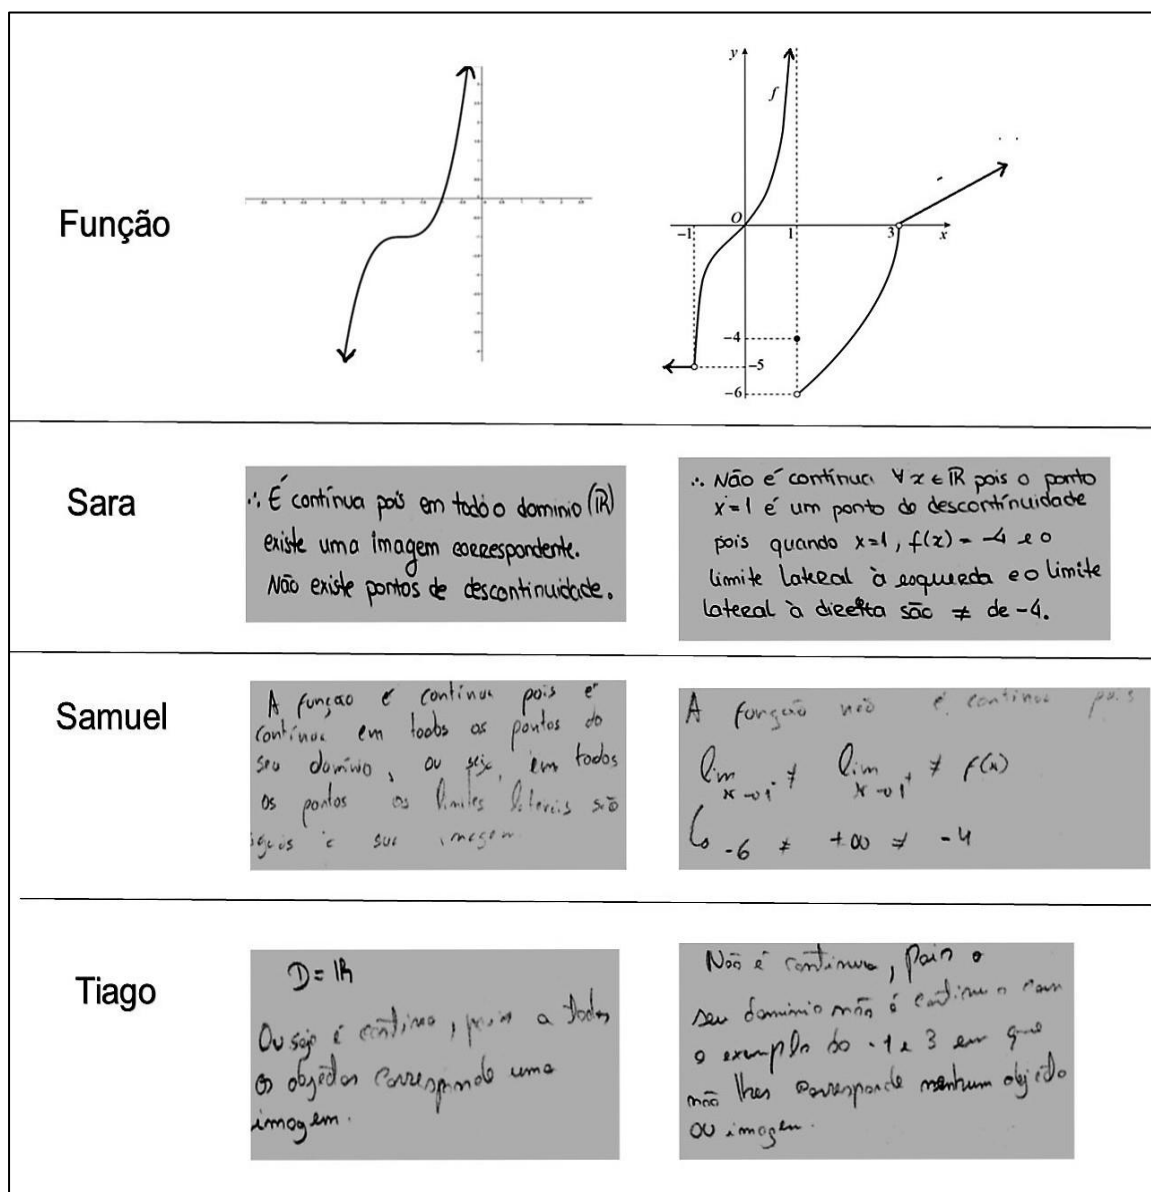 Função
y
f
O
-1
1
3
x
-4
-5
-6
Sara
∴ É contínua pois em todo o dominio (ℝ)
existe uma imagem correspondente.
Não existe pontos de descontinuidade.
∴ Não é contínua ∀x∈ℝ pois o ponto
x=1 é um ponto de descontinuidade
pois quando x=1, f(x) = -4 e o
limite lateral à esquerda e o limite
lateral à direita são ≠ de -4.
Samuel
A função é contínua pois é
contínua em todos os pontos do
seu domínio, ou seja, em todos
os pontos os limites laterais são
iguais à sua imagem.
A função não é continua pois
lim x→1⁻ ≠ lim x→1⁺ ≠ f(x)
↳ -6 ≠ +∞ ≠ -4
Tiago
D = IR
Ou seja é contínua, pois a todos
os objetos corresponde uma
imagem.
Não é continua, pois o
seu dominio não é continuo com
o exemplo do -1 e 3 em que
não lhes corresponde nenhum objeto
ou imagem.